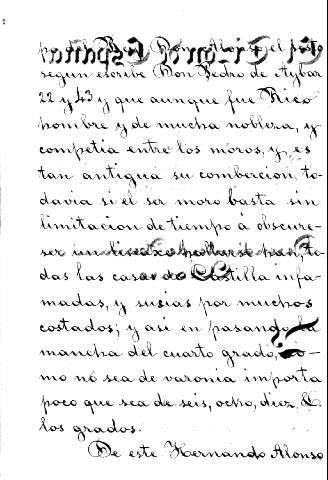 según escribe Don Pedro de Aybar
22 y 43 y que aunque fue Rico
hombre y de mucha nobleza, y
competia entre los moros, y es
tan antigua su combercion, to-
davia si el ser moro basta sin
limitacion de tiempo à obscure-
ser un
das las casas de Castilla infa-
madas, y susias por muchos
costados; y asi en pasando la
mancha del cuarto grado, co-
mo nó sea de varonia importa
poco que sea de seis, ocho, diez, &.
los grados.
De este Hernando Alonso